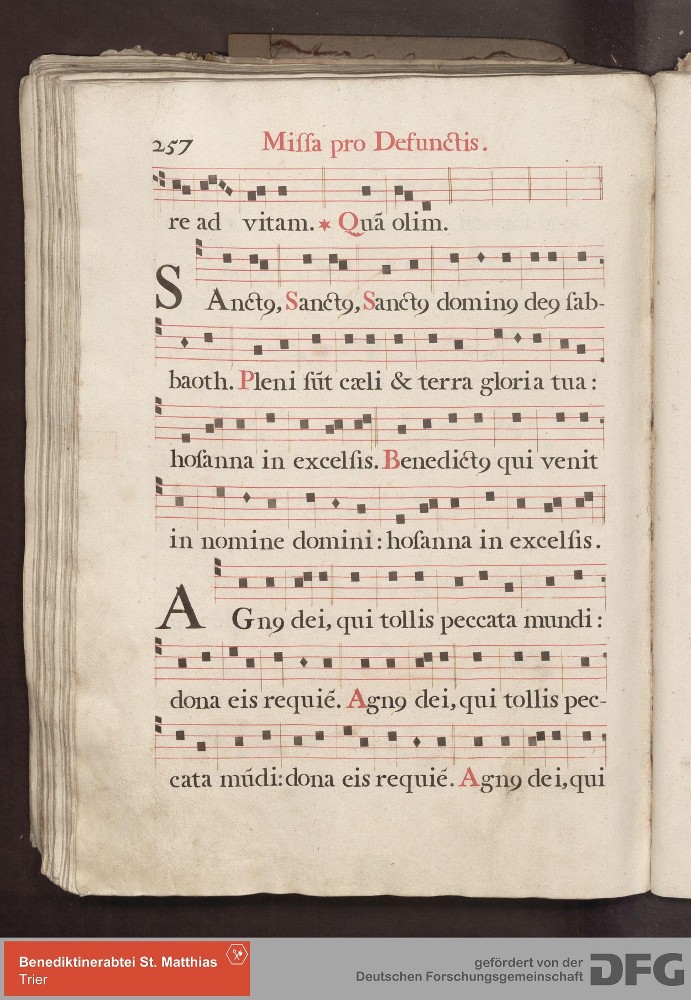 257 Miſſa pro Defunctis.
re ad vitam. * Quã olim.
SAnctꝯ, Sanctꝯ, Sanctꝯ dominꝯ deꝯ ſab-
baoth. Pleni ſũt cæli & terra gloria tua:
hoſanna in excelſis. Benedictꝯ qui venit
in nomine domini: hoſanna in excelſis.
AGnꝯ dei, qui tollis peccata mundi:
dona eis requiẽ. Agnꝯ dei, qui tollis pec-
cata mũdi: dona eis requiẽ. Agnꝯ dei, qui
Benediktinerabtei St. Matthias
Trier
gefördert von der
Deutschen Forschungsgemeinschaft
DFG